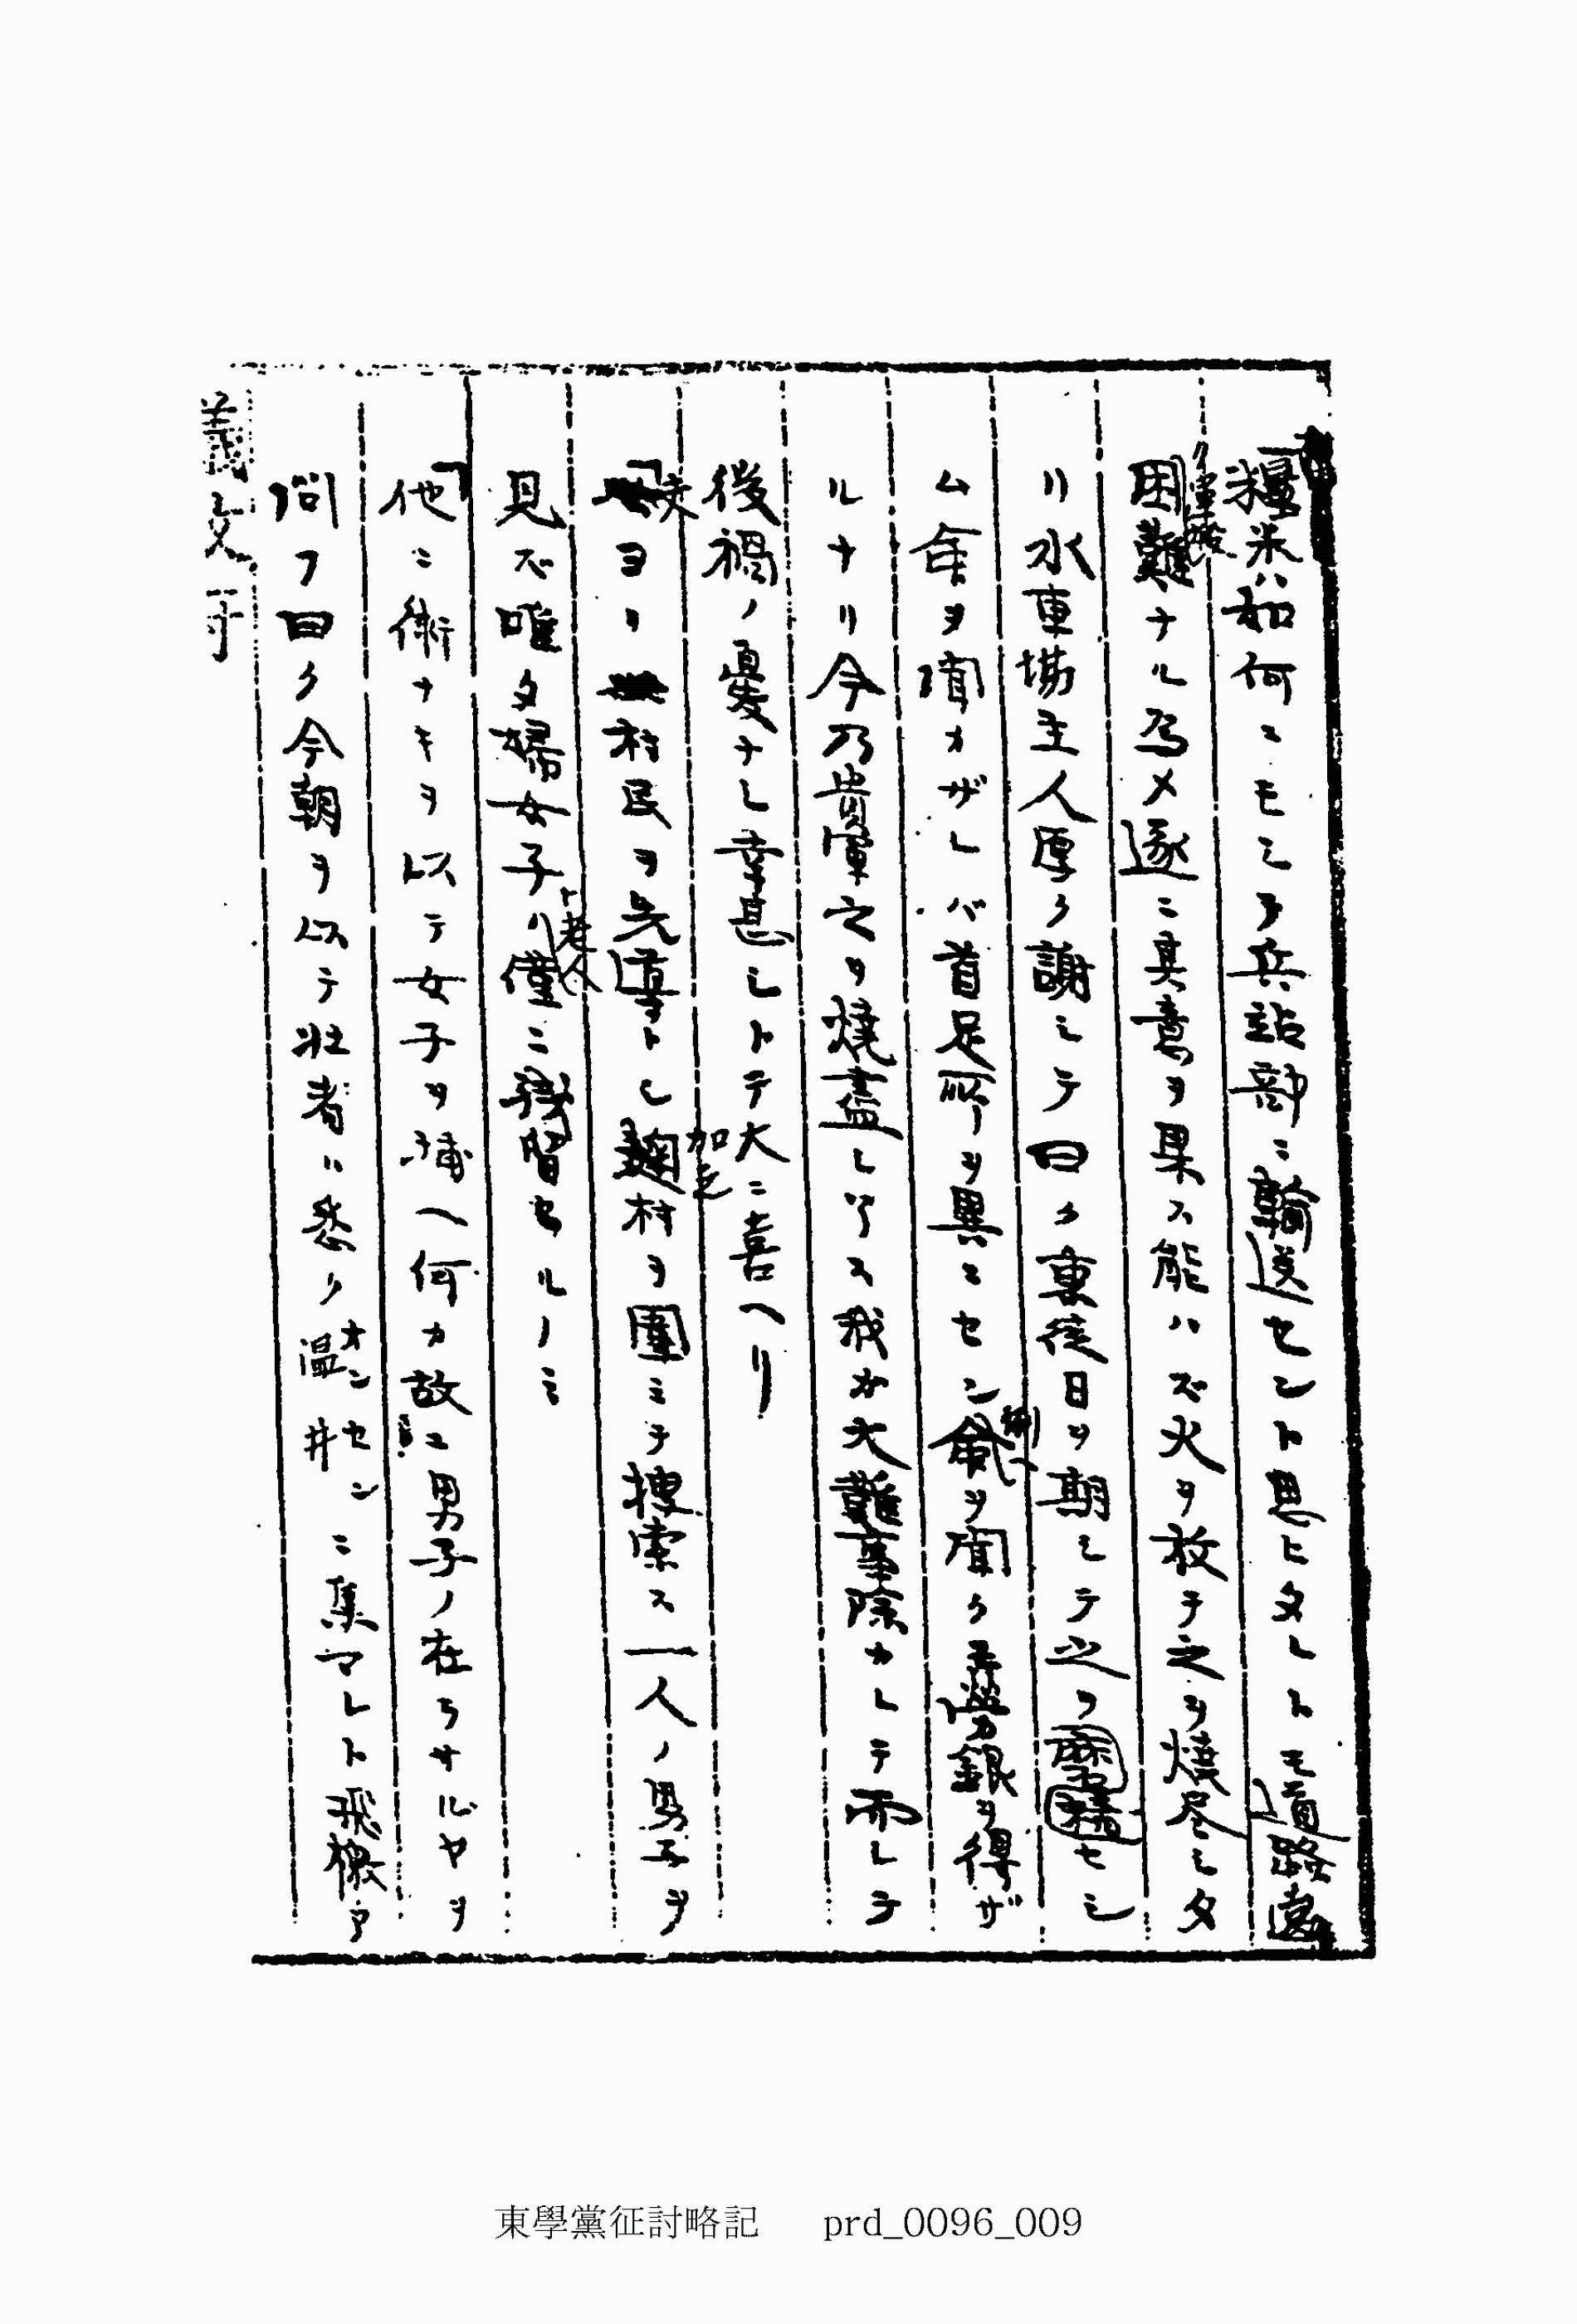 糧米ハ如何ニモシテ兵站部ニ輸送セント思ヒタレトモ道路遠
困難ナル為メ遂ニ其意ヲ果ス能ハズ火ヲ放チ之ヲ燒尽シタ
リ水車場主人厚ク謝シテ曰ク東徒日ヲ期シテ之ヲ精セシ
ム命ヲ聞カザレバ首足所ヲ異ニセン命ヲ聞ク モ勞銀ヲ得ザ
ルナリ今乃貴軍之ヲ燒盡シ了ス我カ大難事除カレテ而シテ
後禍ノ憂ナシ幸甚シトテ大ニ喜ヘリ
ヨリ村民ヲ先導トシ村ヲ圍ミテ搜索ス一人ノ男子ヲ
加之
見ズ唯タ婦女子ト老人ハ僅ニ殘留セルノミ
「他ニ術ナキヲ以テ女子ヲ捕ヘ何カ故ニ男子ノ在ラサルヤヲ
問フ曰ク今朝ヲ以テ壯者ハ悉ク温井ニ集マレト飛檄ア
オンセン
義文字
東學黨征討略記 prd_0096_009